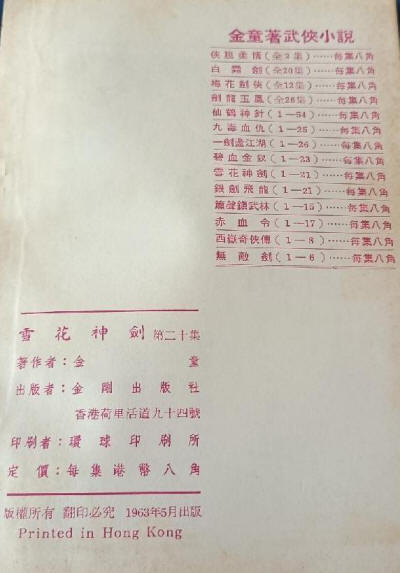 金童著武俠小說
俠胆柔情(全2集)……每集八角
白霜劍(全20集)……每集八角
梅花劍俠(全12集)……每集八角
劍龍玉鳳(全26集)……每集八角
仙鶴神針(1—54)……每集八角
九毒血仇(1—25)……每集八角
一劍盪江湖(1—26)……每集八角
碧血金釵(1—23)……每集八角
雪花神劍(1—21)……每集八角
銀劍飛龍(1—21)……每集八角
簫聲鎮武林(1—15)……每集八角
赤血令(1—17)……每集八角
西嶽奇俠傳(1—8)……每集八角
無敵劍(1—6)……每集八角
雪花神劍 第二十集
著作者：金童
出版者：金剛出版社
香港荷里活道九十四號
印刷者：環球印刷所
定價：每集港幣八角
版權所有 翻印必究 1963年5月出版
Printed in Hong Kong